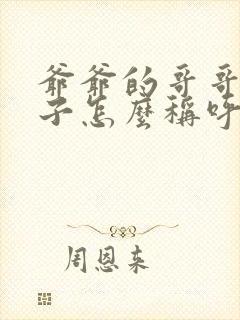 爺爺的哥哥
子怎麼稱呼
周恩来